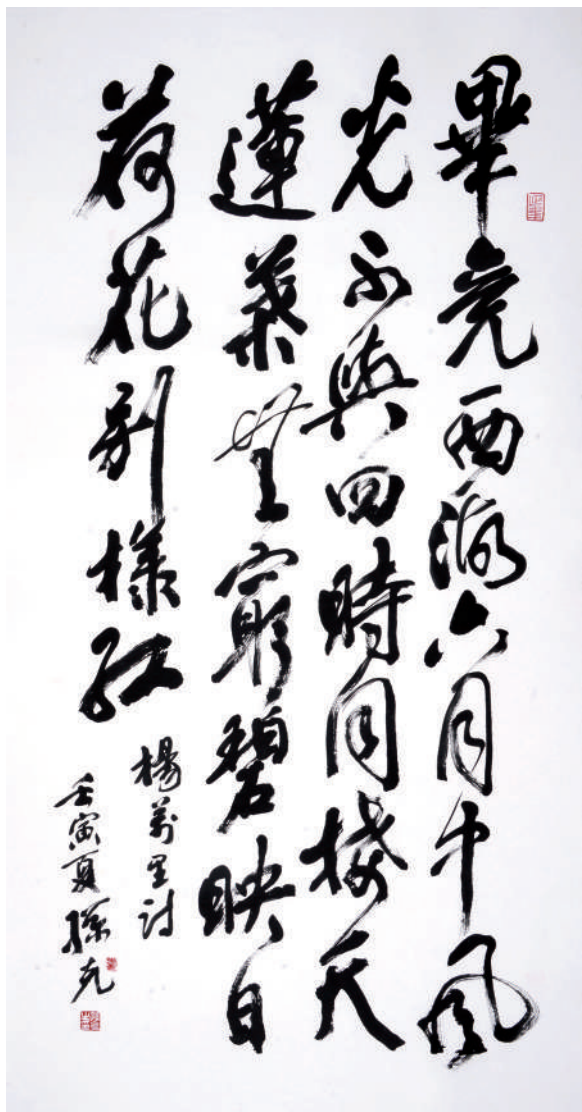 畢竟西湖六月中風
光不與四時同接天
蓮葉無窮碧映日
荷花別樣紅
楊萬里詩
壬寅夏孫克